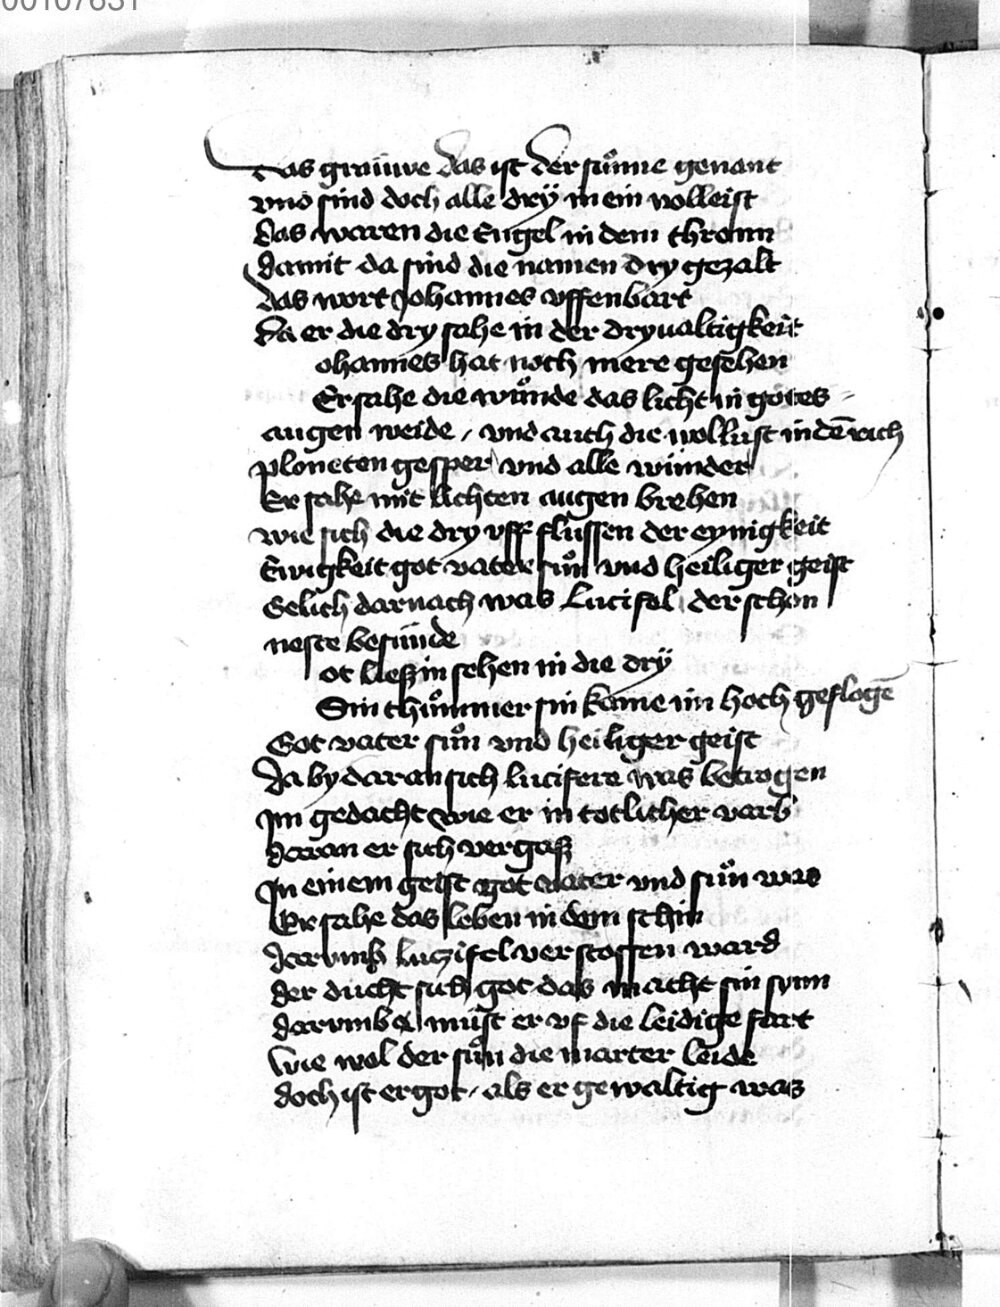 00107631
Das grauwe das ist der suͦnne genant
vnd sind doch alle drÿ in ein volleist
das waren die Engel in dem thronn
damit da sind die namen dry gezalt
das wort Johannes vffenbart
da er die dry sahe in der dryualtigkeit
ohannes hat noch mere gesehen
Er sahe die wuͦnde das licht in gottes
augen weide / vnd auch die wollust in dē rich
ploneten gesper vnd alle wunder
Er sahe mit lichten augen brehen
wie sich die dry vff flussen der eynigkeit
Ewigkeit got vater suͦn vnd heiliger geist
Gelich darnach was Lucifel der schon
neste besunde
ot liesz in sehen in die drÿ
Sin thuͦmmer sin kame im hoch geflogē
Got vater suͦn vnd heiliger geist
Da by daran sich lucifere was betrogen
Im gedacht wie er in totlicher varb
daran er sich vergasz
In einem geist got vater vnd suͦn was
Er sahe das leben in dem schin
darvmb luczifel verstossen ward
der ducht sich got das macht sin synn
darvmb must er vf die leidige fart
Wie wol der suͦn die marter leide
doch ist er got / als er gewaltig was